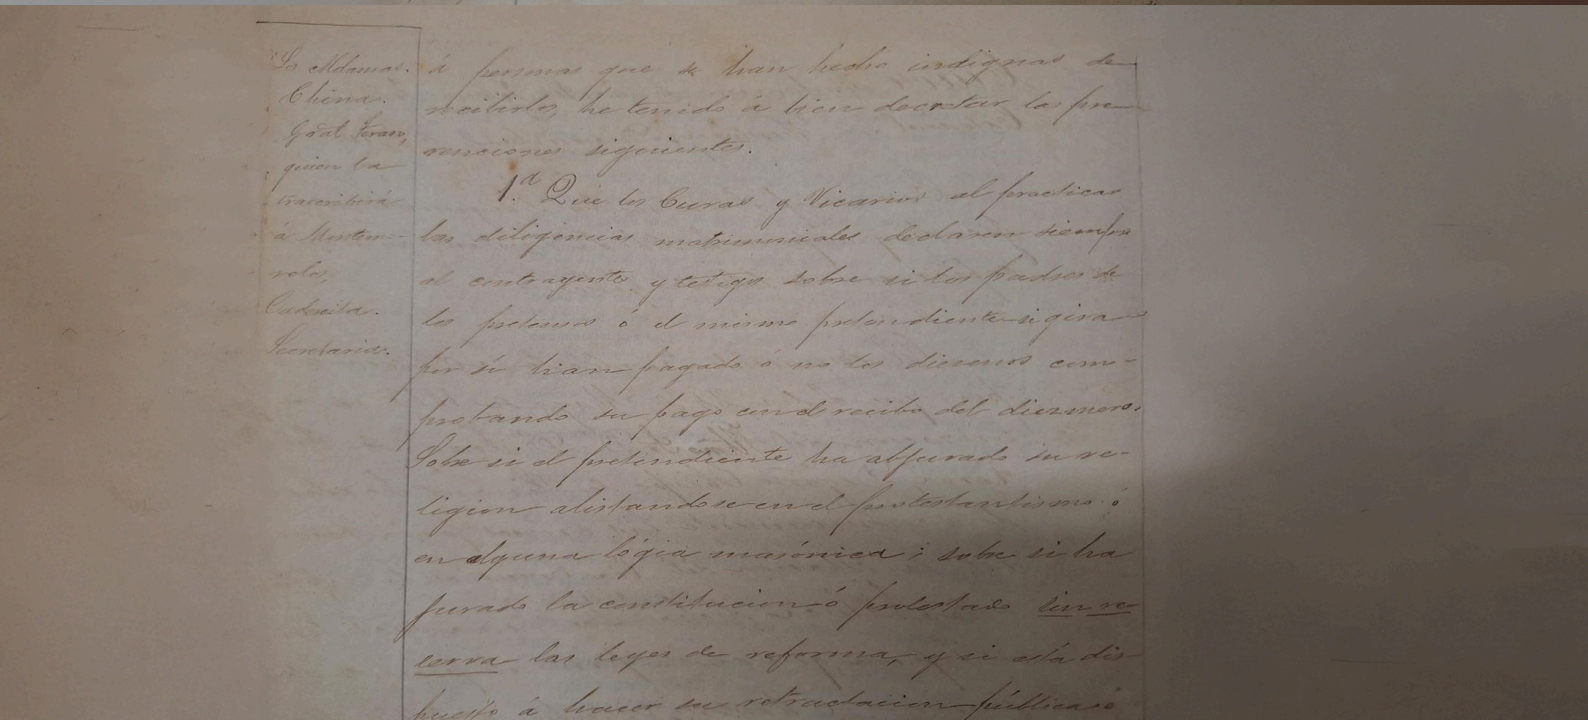 Los Aldamas.
China.
Gral Teran,
quien la
trascribirá
á Montemo-
relos,
Cadereita.
Secretaria.
á personas que se han hecho indignas de
recibirlos, he tenido á bien decretar las pre-
venciones siguientes.
1.a Que los Curas y Vicarios al practicar
las diligencias matrimoniales declaren siempre
al contrayente y testigos sobre si los padres de
los pretensos ó el mismo pretendiente si gira
por sí han pagado ó no los diesmos com-
probando su pago con el recibo del diesmero.
Sobre si el pretendiente ha abjurado su re-
ligion alistandose en el protestantismo ó
en alguna lógia masónica: sobre si ha
jurado la constitucion ó protestado sin re-
serva las leyes de reforma, y si está dis-
puesto á hacer su retractacion pública ó